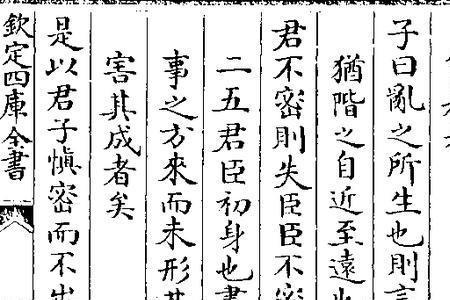 子曰亂之所生也則言
猶階之自近至遠也
君不密則失臣臣不密
二五君臣初身也書
事之方來而未形其
害其成者矣
是以君子慎密而不出
欽定四庫全書